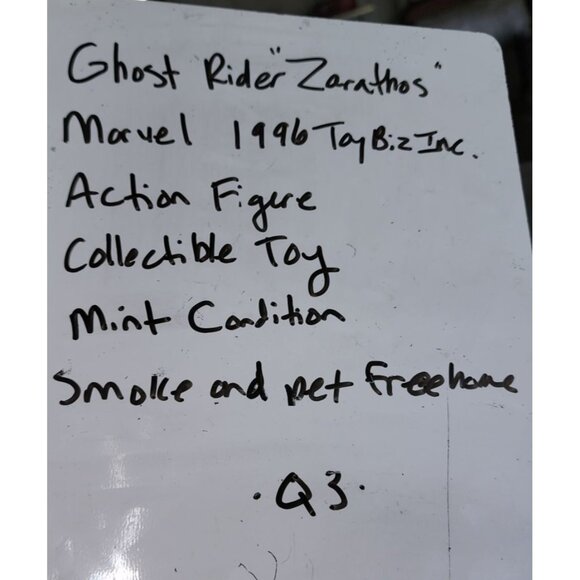 Ghost Rider "Zarathos"
Marvel 1996 Toy Biz Inc.
Action Figure
Collectible Toy
Mint Condition
Smoke and pet free home
. Q3.